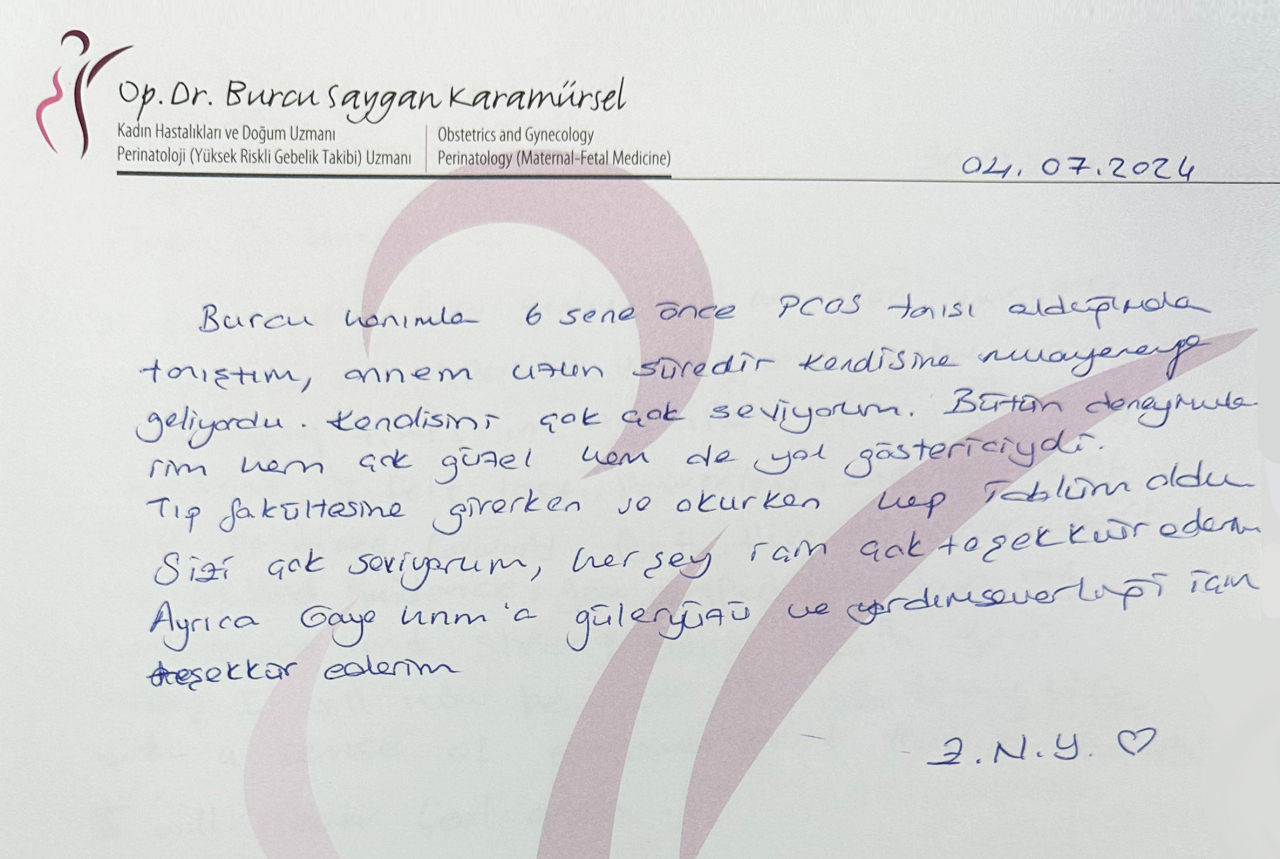 Op. Dr. Burcu Saygan Karamürsel
Kadın Hastalıkları ve Doğum Uzmanı
Perinatoloji (Yüksek Riskli Gebelik Takibi) Uzmanı
Obstetrics and Gynecology
Perinatology (Maternal-Fetal Medicine)
04.07.2024
Burcu hanımla 6 sene önce PCOS tanısı aldığımda
tanıştım, annem uzun süredir kendisine muayeneye
geliyordu. Kendisini çok çok seviyorum. Bütün deneyimle
rim hem çok güzel hem de yol göstericiydi.
Tıp fakültesine girerken ve okurken hep idolüm oldu
Sizi çok seviyorum, her şey için çok teşekkür ederim
Ayrıca Gaye Hnm'a güleryüzü ve yardımseverliği için
teşekkür ederim
Z.N.Y. ♡